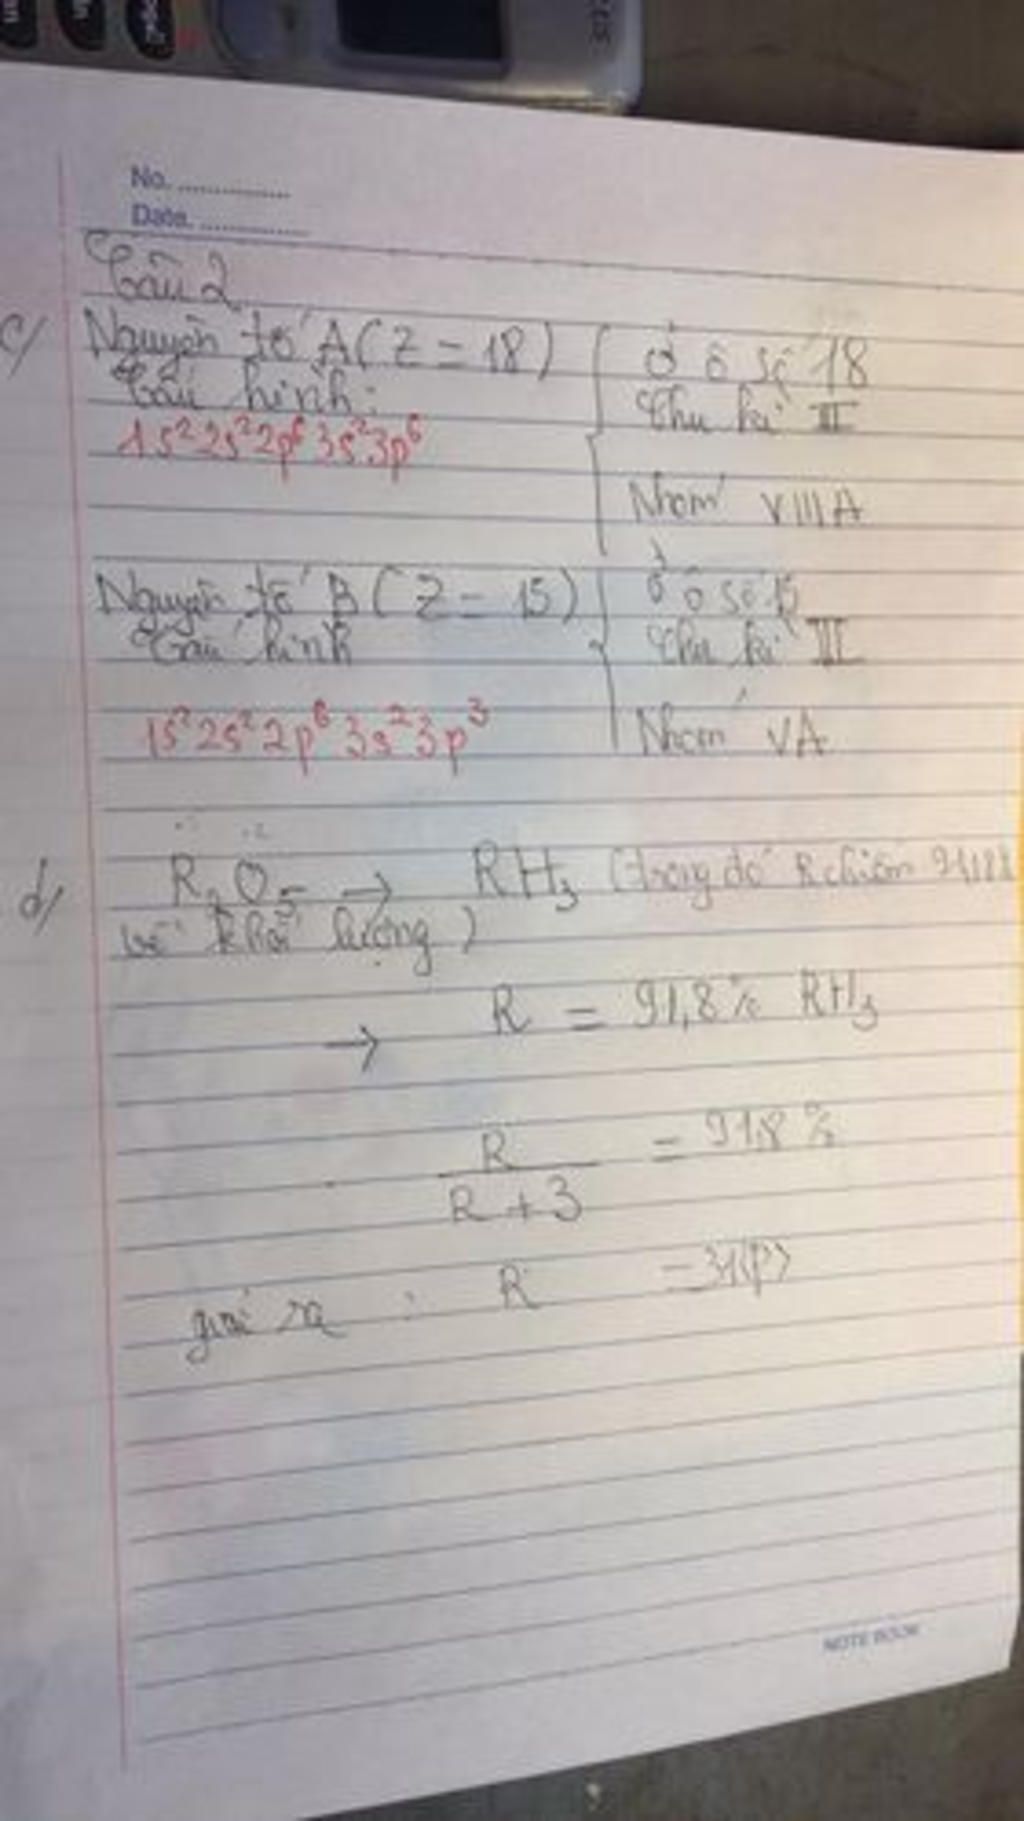 No.
Date.
Câu 2
c/ Nguyên tố A (Z = 18)
Cấu hình:
1s²2s²2p⁶3s²3p⁶
Ở ô số 18
Chu kì III
Nhóm VIIIA
Nguyên tố B (Z = 15)
Cấu hình
1s²2s²2p⁶3s²3p³
Ở ô số 15
Chu kì III
Nhóm VA
d/ R₂O₅ → RH₃ (trong đó R chiếm 91,18%
về khối lượng)
→ R = 91,8% RH₃
R / R + 3 = 91,8%
giải ra : R = 31(P)
NOTE BOOK